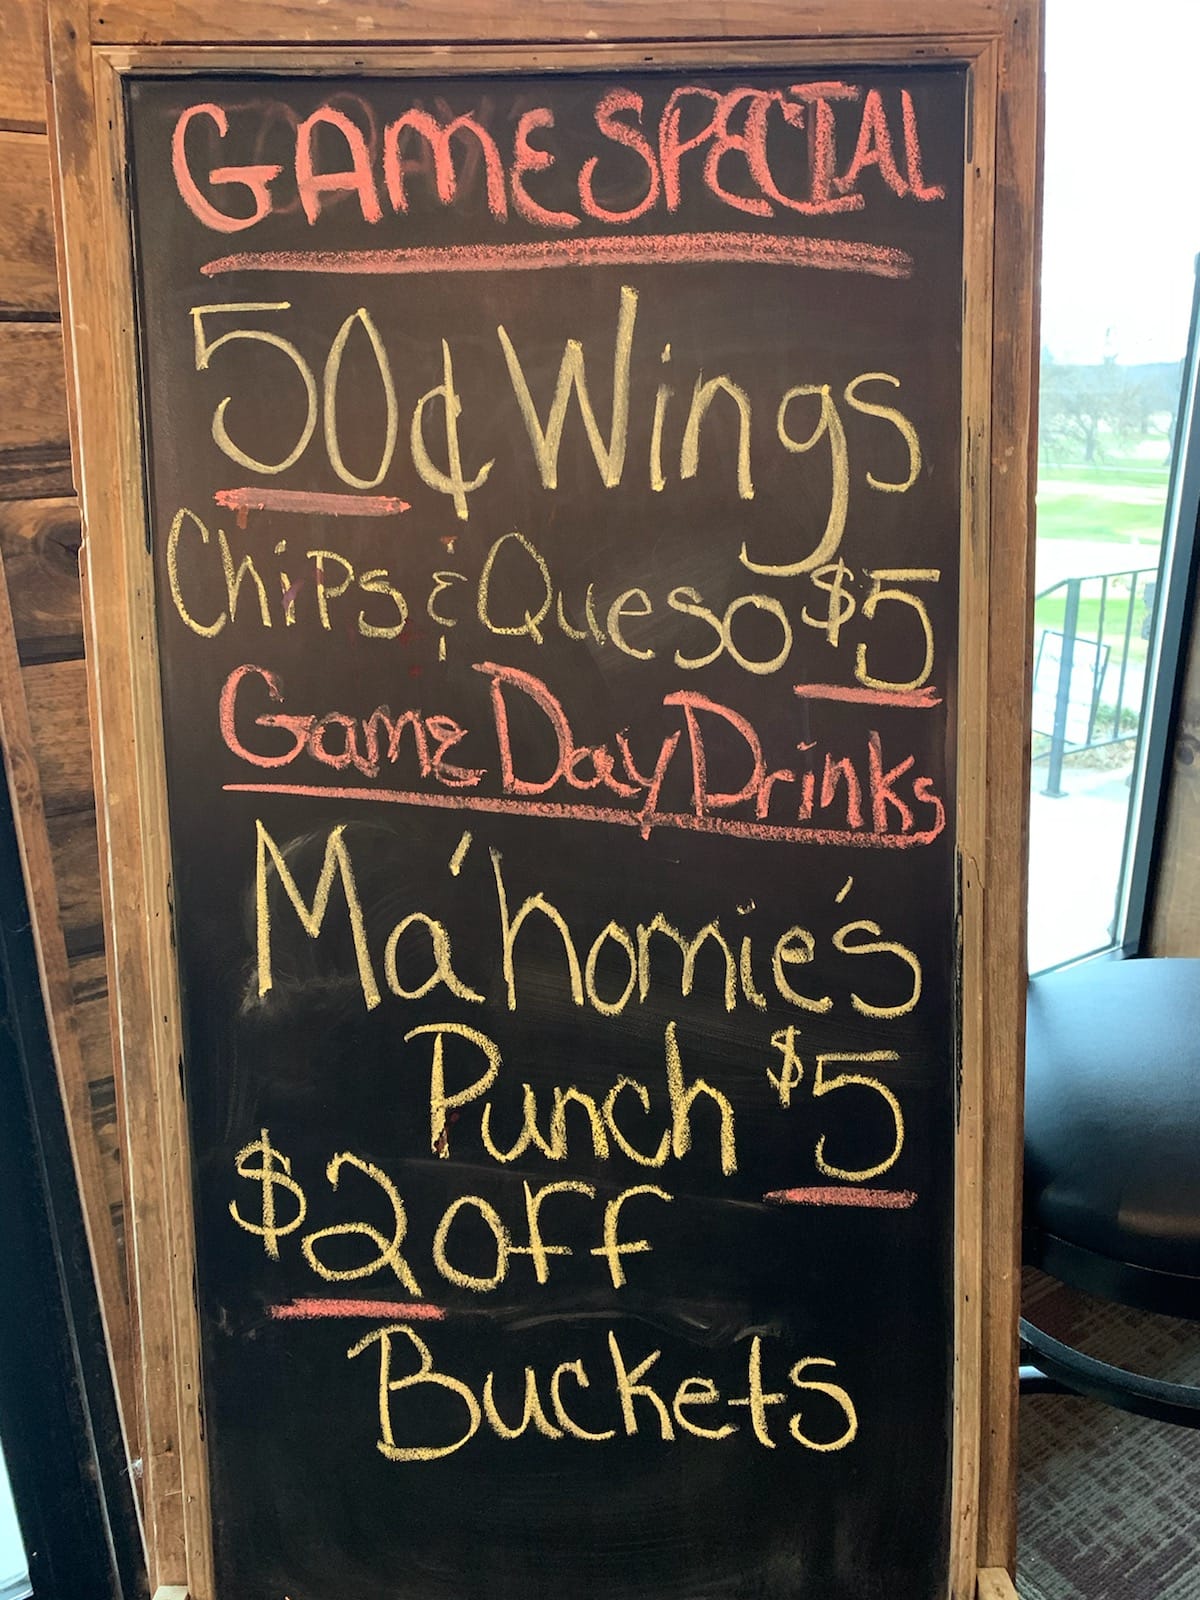 GAME SPECIAL
50¢ Wings
Chips & Queso $5
Game Day Drinks
Ma'homie's
Punch $5
$2 off
Buckets